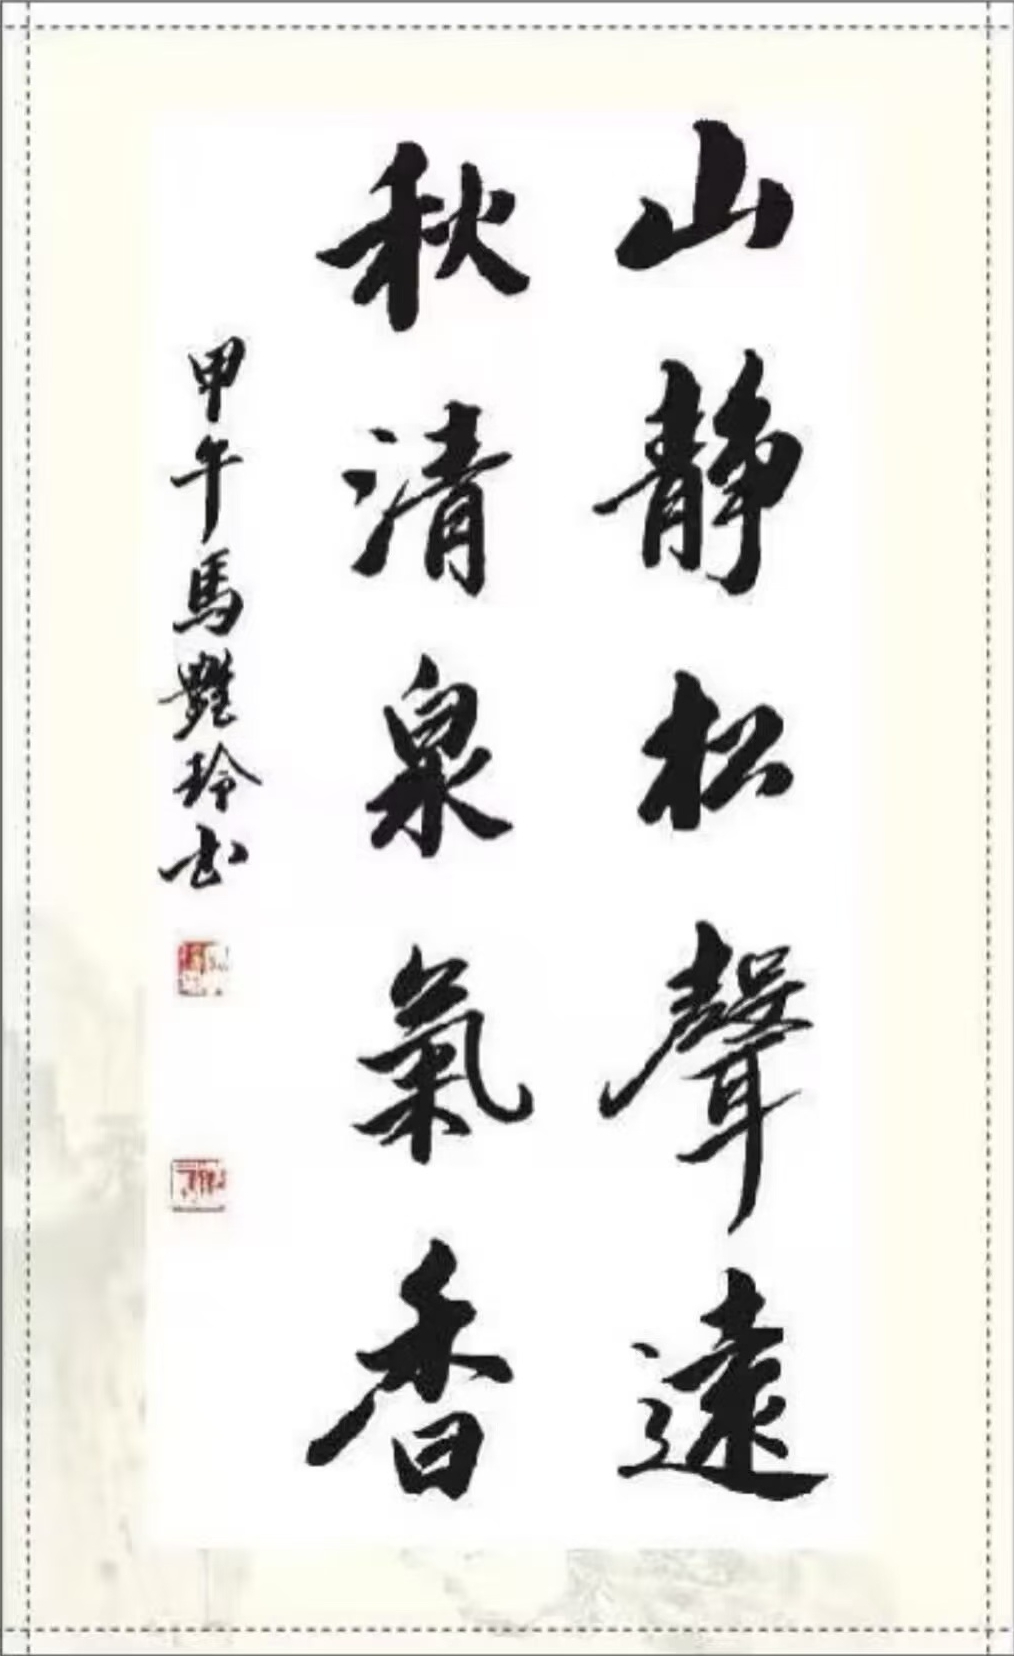 山靜松聲遠
秋清泉氣香
甲午馬艷玲书